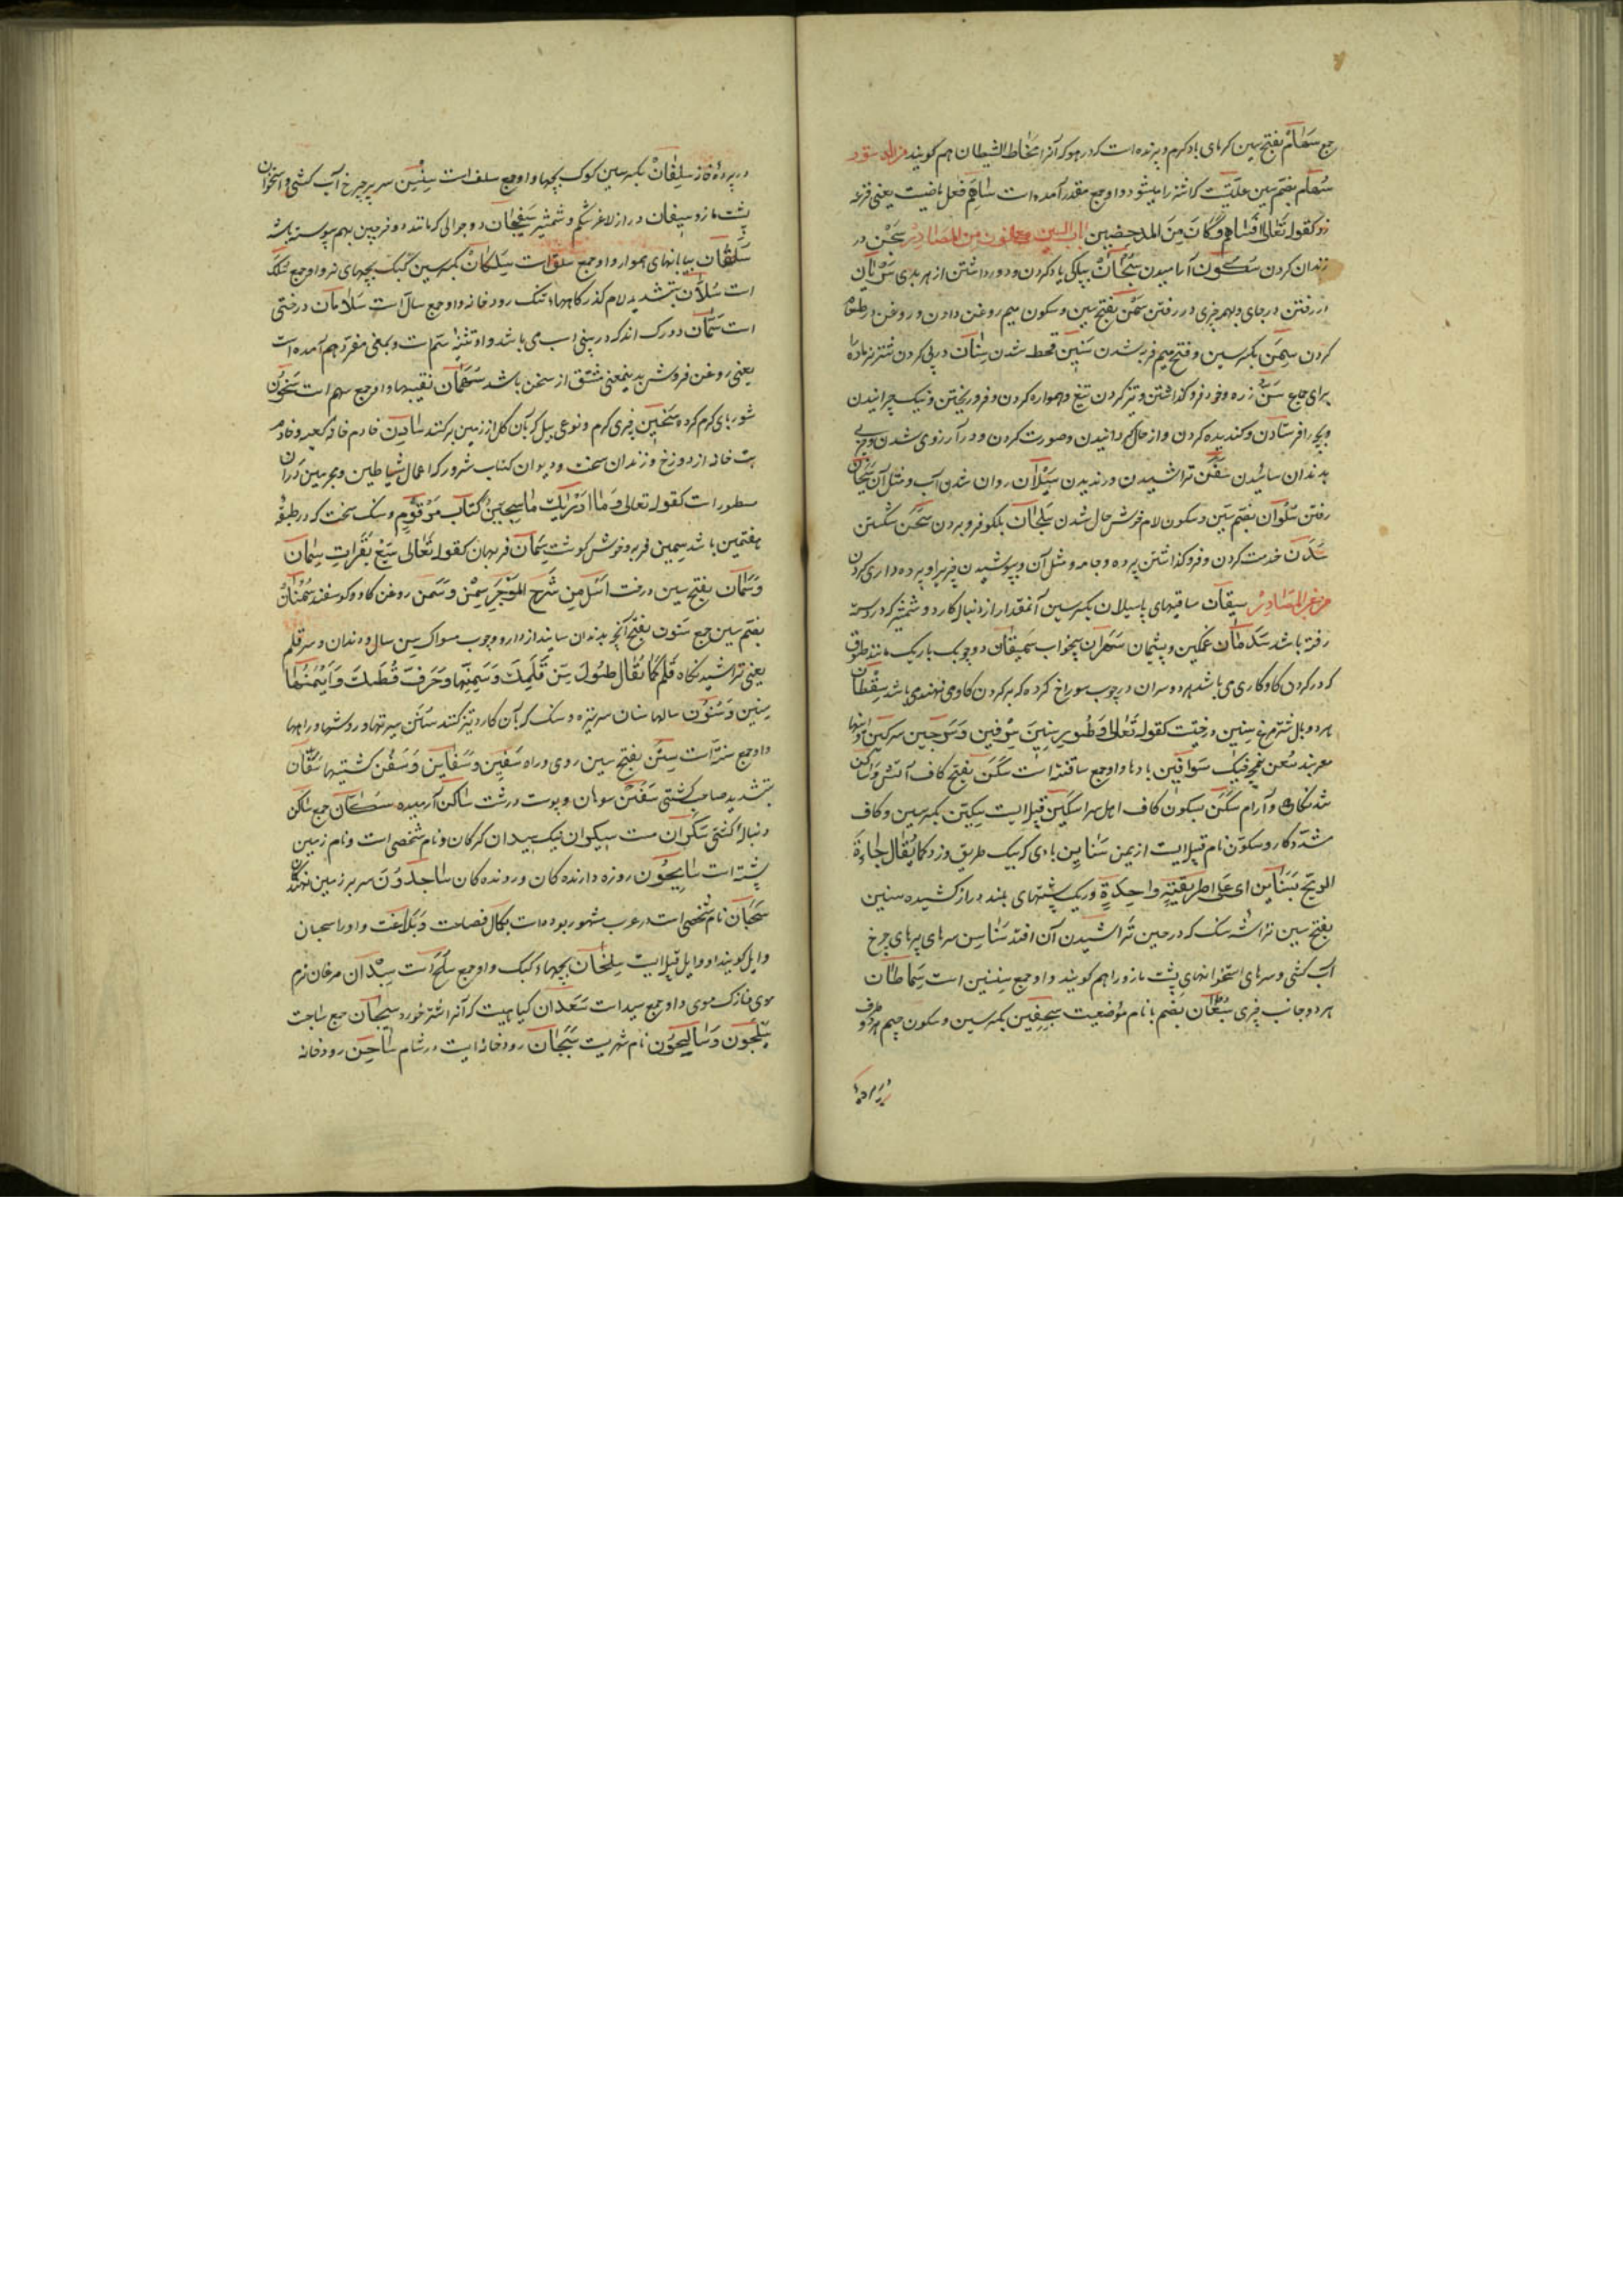 جمع سَهَامْ بفتح سین کرمای باد کرم و پرنده است که در هوا که آنرا مخاط الشیطان هم کویند
سُهَام بضم سین علتیست که اشتر را میشود و او جمع مقدر آمده است سَاهَمَ فعل ماضیست یعنی قرعه
زد کقوله تعالی فَسَاهَمَ فَكَانَ مِنَ المدحضین باب السین مع النون من المَصَادِرْ سَجْنْ در
زندان کردن سَكُون آرامیدن سُبْحَانْ بپاکی یاد کردن و دور داشتن از هر بدی سَرَيَان
در رفتن در جای و بهمه چیزی در رفتن سَمْن بفتح سین و سکون میم روغن دادن و روغن در طعام
کردن سِمَن بکسر سین و فتح میم فربه شدن سَنِين قحط شدن سِنَان در پی کردن شتر نر ماده را
برای جماع سَنّ زره و خود فرو کذاشتن و تیز کردن تیغ و هموار کردن و فرو ریختن و نیک چرانیدن
بدندان سائیدن سَفْن تراشیدن و رندیدن سَيَلَان روان شدن آب و مثل آن سَيَحَان
رفتن سُلْوَان بضم سین و سکون لام خوش حال شدن سَلَجَان بکلو فرو بردن سَحْن شکستن
سَدْن خدمت کردن و فرو کذاشتن پرده و جامه و مثل آن و پوشیدن چیزی را و پرده داری کردن
من غیر المَصَادِرْ سِيقَان ساقهای پا سیلان بکسر سین آنمقدار از دنبال کارد و شمشیر که در دسته
رفته باشد سَدْمَان غمکین و پشیمان سَهْرَان بیخواب سَمِيقَان دو چوبک باریک مانند طوق
که در کردن کاو کاری می باشد هر دو سر آن در چوب سوراخ کرده که بر کردن کاو می نهند می باشد سِقْطَان
هر دو بال شترمرغ سِنِين درختیست کقوله تعالی وَطُورِ سِنِين سِرْقِين وَسِرْجِين سرکین
سَوَافِن بادها و او جمع سافنه است سَكَن بفتح کاف آتش
و آرام سَكْن بسکون کاف اهل سرا سَكِين قبیله ایست سِكِّين بکسر سین و کاف
مشدد کارد و سکون نام قبیله ایست از یمن سَنَايِن بادی که بیک طریق وزد کما یُقَال جاءت
الریح سَنَاين ای علی طریقةٍ واحدةٍ و ریک پشتهای بلند و دراز کشیده سنین
بفتح سین تراشه سنک که در حین تراشیدن آن افتد سَنَاسِن سرهای پرهای چرخ
آب کشی و سرهای استخوانهای پشت مازو را هم کویند و او جمع سِنْسِن است سِمَاطَان
هر دو جانب چیزی سُبْعَان بضم با نام موضعیست سِجِفِين بکسر سین و سکون جیم
در پرده خانه سِلْفَانْ بکسر سین کبک بچها و او جمع سلف است سِنْسِن سر پر چرخ آب کشی و استخوان
پشت مازو سیفان دراز لاغر شکم و شمشیر سَفِيحَان دو جوالی که مانند دو خرجین بهم پیوسته باشد
سَلْقَان بیابانهای هموار و او جمع سَلَق است سِلْكَان بکسر سین کبک بچهای نر و او جمع سُلَك
است سُلَّان بتشدید لام کذرکاهها، تنک رودخانه و او جمع سالّ است سَلَامَان درختی
است سَمَّان دو رک اند که در بینی اسب می باشد و او تثنیه سَم است و بمعنی مفرد هم آمده است
یعنی روغن فروش بدینمعنی مشتق از سمن باشد سُهْمَان نقیبها و او جمع سهم است سَخُون
شوربای کرم کرده سَخِين چیزی کرم و نوعی بیل که بآن کل از زمین برکنند سَادِن خادم خانه کعبه و خادم
بت خانه از دوزخ و زندان سخت و دیوان کتاب شرور که اعمال شیاطین و مجرمین در آن
مسطور است کقوله تعالی وَمَا أَدْرَيكَ مَا سِجِّينٌ كِتَابٌ مَرْقُومٌ و سنک سخت که در طبقه
هفتمین باشد سمین فربه و خورش کوشت سِمَان فربهان کقوله تعالی سَبْعَ بَقَرَاتٍ سِمَان
وَسَمَان بفتح سین درخت اسل من شرح الموجز سِمْن وَسَمْن روغن کاو و کوسفند سُمْنَان
بضم سین جمع سَنُون بفتح آنچه بدندان سایند از دارو و چوب مسواک سِن سال و دندان و سر قلم
یعنی تراشیدنکاه قلم کما یُقَال طَوِّلْ سِنّ قَلَمِكَ وَسَمِّنْهَا وَحَرِّفْ قَطَّتَكَ وَأَيْمِنْهَا
سِنِين وَسُنُون سالها سِنان سر نیزه و سنک که بآن کارد تیز کنند سُنَن سیرتها و روشها و راهها
و او جمع سنة است سَنَن بفتح سین روی و راه سَفِين وَسَفَاين وَسُفُن کشتیها سَفَّان
بتشدید صاحب کشتی سَفَن سوهان و پوست درشت سَاكِن آرمیده سُكَّان جمع ساکن
دنبالهٔ کشتی سَكْرَان مست سیکوان نیک سیدان کرکان و نام شخصی است و نام زمین
پشته است سَايِحُون روزه دارنده کان و رونده کان سَاجِدُونَ سر بر زمین نهنده کان
سَحْبَان نام شخصی است در عرب مشهور بوده است بکمال فصاحت وبلاغت و او را سحبان
وایل کویند او وایل قبیله ایست سِلْحَان بچهاء کبک و او جمع سُلَح است سِبْدَان مرغان نرم
موی نازک موی و او جمع سبد است سَعْدَان کیاهیست که آنرا اشتر خورد سِيجَان جمع ساجت
سَيْلَحُون وَسَالِحُون نام شهریست سَيْحَان رودخانه ایست در شام سَاحِن رودخانه